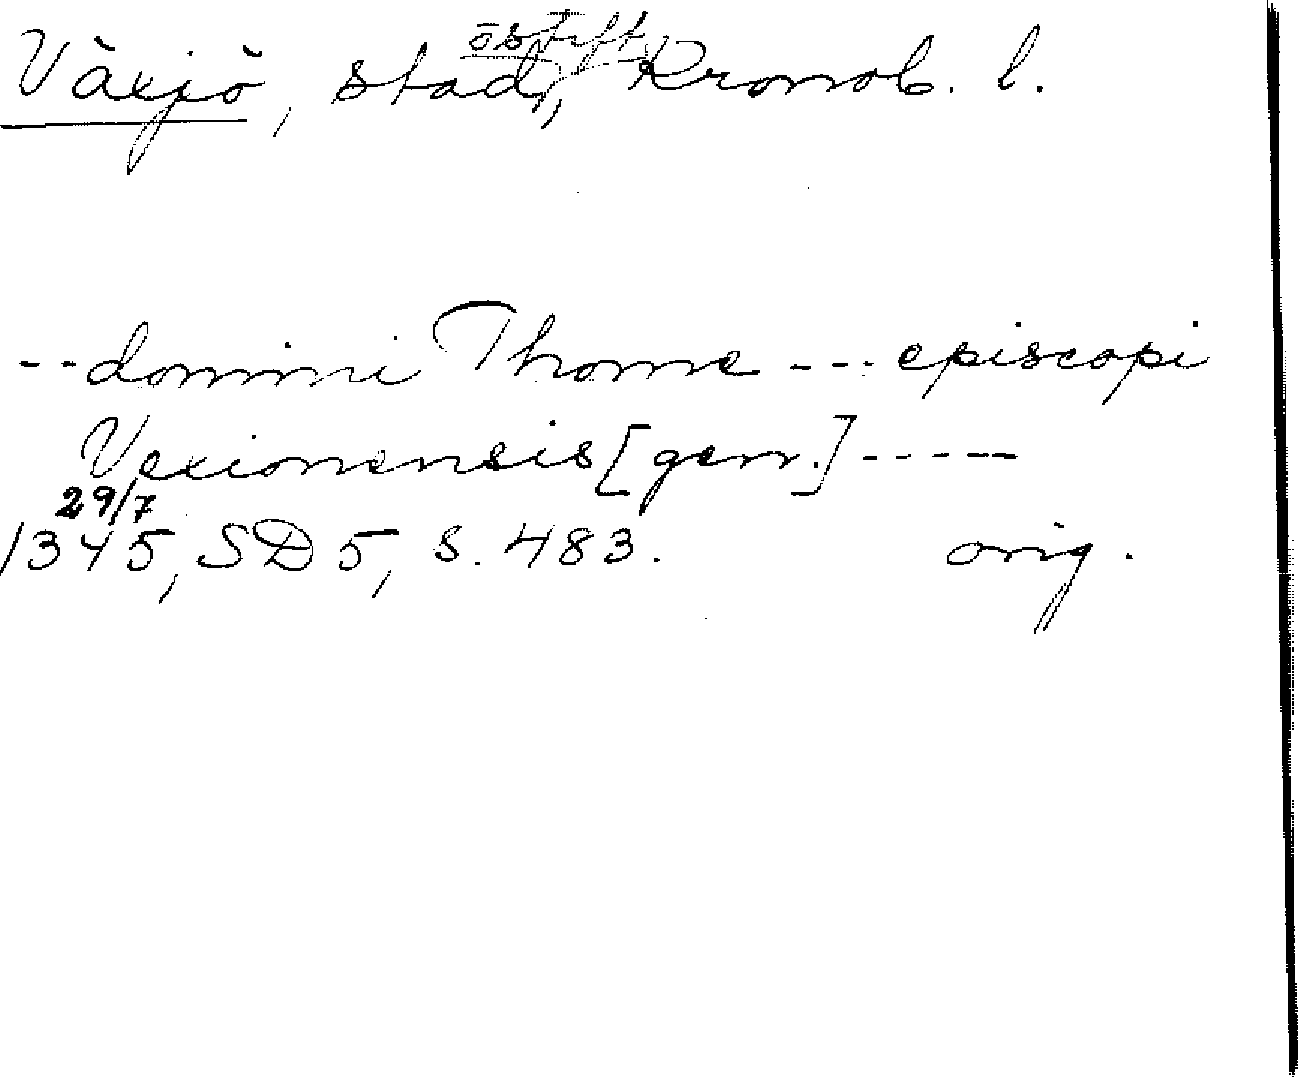 Växjö, stad, Kronob. l.
-- domini Thome --- episcopi
Vexionensis [gen.] -----
29/7
1345, SD 5, s. 483. orig.